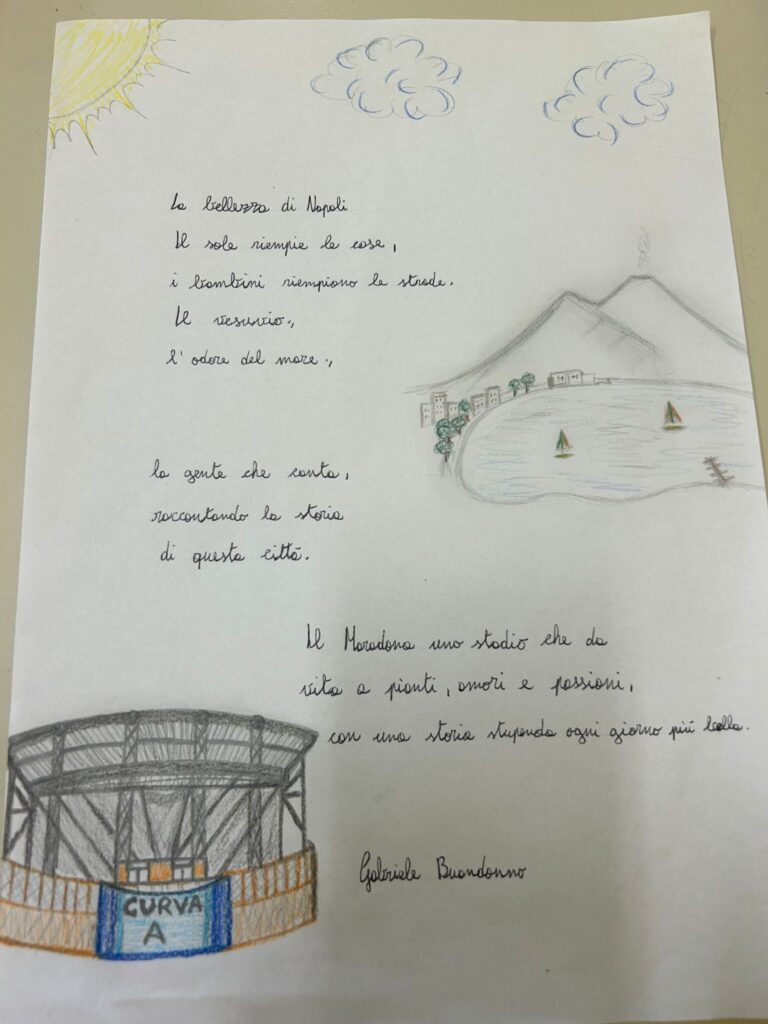 La bellezza di Napoli
Il sole riempie le case,
i bambini riempiono le strade.
Il vesuvio.,
l'odore del mare.,
la gente che canta,
raccontando la storia
di questa città.
Il Maradona uno stadio che da
vita a pianti, amori e passioni,
con una storia stupenda ogni giorno più bella.
Gabriele Buondonno
CURVA
A